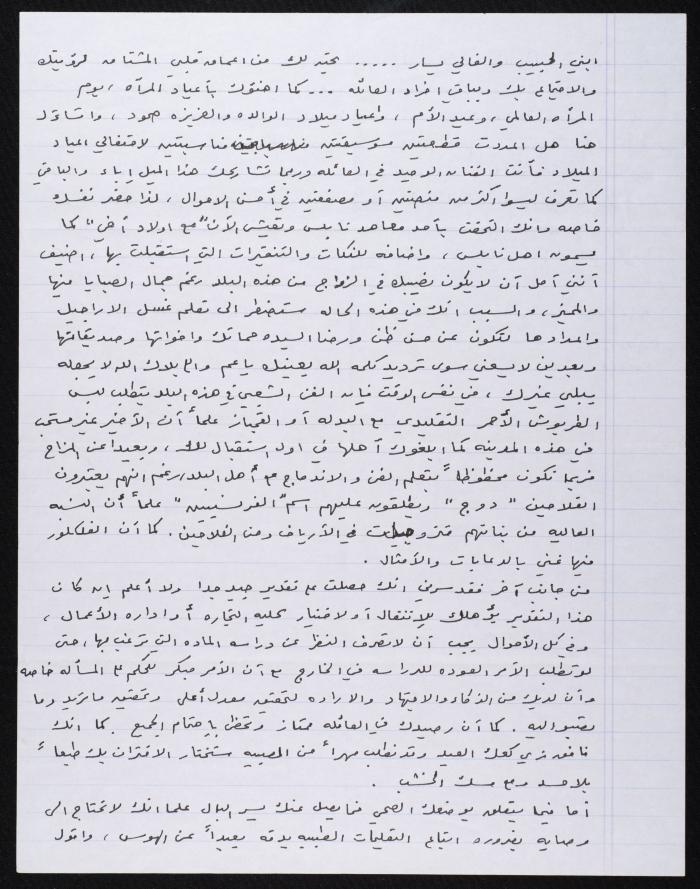 ابني الحبيب والغالي يسار ..... تحيه لك من اعماق قلبي المشتاق لرؤيتك
والاجتماع بك وبباقي افراد العائله ... كما اهنؤك بأعياد المرأه ، يوم
المرأه العالمي ، وعيد الأم ، واعياد ميلاد الوالده والعزيزه صمود ، واتساؤل
هنا هل اعددت قطعتين موسيقيتين مناسبتين لاحتفالي اعياد
الميلاد فأنت الفنان الوحيد في العائله وربما تشاركك هذا الميل إباء والباقي
كما تعرف ليسوا اكثر من منصتين أو مصفقين في أحسن الاحوال ، لذا حضر نفسك
خاصه وانك التحقت بأحد معاهد نابلس وتعيش الآن " مع اولاد أخي " كما
يسمون اهل نابلس ، واضافه للنكات والتنقيرات التي استقبلت بها ، اضيف
أنني آمل أن لا يكون نصيبك في الزواج من هذه البلد رغم جمال الصبايا فيها
والمميز ، والسبب انك في هذه الحاله ستضطر الى تعلم غسل الاراجيل
واعدادها لتكون عن حسن ظن ورضا السيده حماتك واخواتها وصديقاتها
وبعدين لا يسعني سوى ترديد كلمه الله يعينك ياعم والابتلاك الله لا يجعله
يبلي غيرك ، في نفس الوقت فإن الفن الشعبي في هذه البلد يتطلب لبس
الطربوش الأحمر التقليدي مع البدله أو القمباز علماً أن الأخير غير مستحب
في هذه المدينه كما ابلغوك أهلها في اول استقبال لك ، وبعيداً عن المزاح
فربما تكون محظوظاً بتعلم الفن والاندماج مع أهل البلد، رغم انهم يعتبرون
الفلاحين " دوج " ويطلقون عليهم اسم " الفرنسيين " علماً أن النسبه
العاليه من بناتهم متزوجات في الأرياف ومن الفلاحين . كما أن الفلكلور
فيها غني بالدعابات والأمثال .
من جانب آخر فقد سرني انك حصلت على تقدير جيد جدا ولا أعلم إن كان
هذا التقدير يؤهلك للإنتقال أو لاختيار كليه التجاره أو اداره الأعمال ،
وفي كل الأحوال يجب أن لا تصرف النظر عن دراسه الماده التي ترغب بها، حتى
لو تطلب الأمر العوده للدراسه في الخارج مع أن الأمر مبكر للحكم على المسأله خاصه
وأن لديك من الذكاء والاجتهاد والاراده لتحقق معدل أعلى وتحقيق ما تريد وما
تصبو اليه . كما أن رصيدك في العائله ممتاز وتحظى بإحترام الجميع . كما انك
فافق زي كعك العيد وقد نطلب مهراً من الصبيه ستختار الاقتران بك طبعاً
بلا حسد ومع مسك الخشب .
أما فيما يتعلق بوضعك الصحي فما يصل عنك يسر البال علما انك لا تحتاج الى
وصايه بضروره اتباع التعليمات الطبيه بدقه بعيداً عن الهوس ، واقول